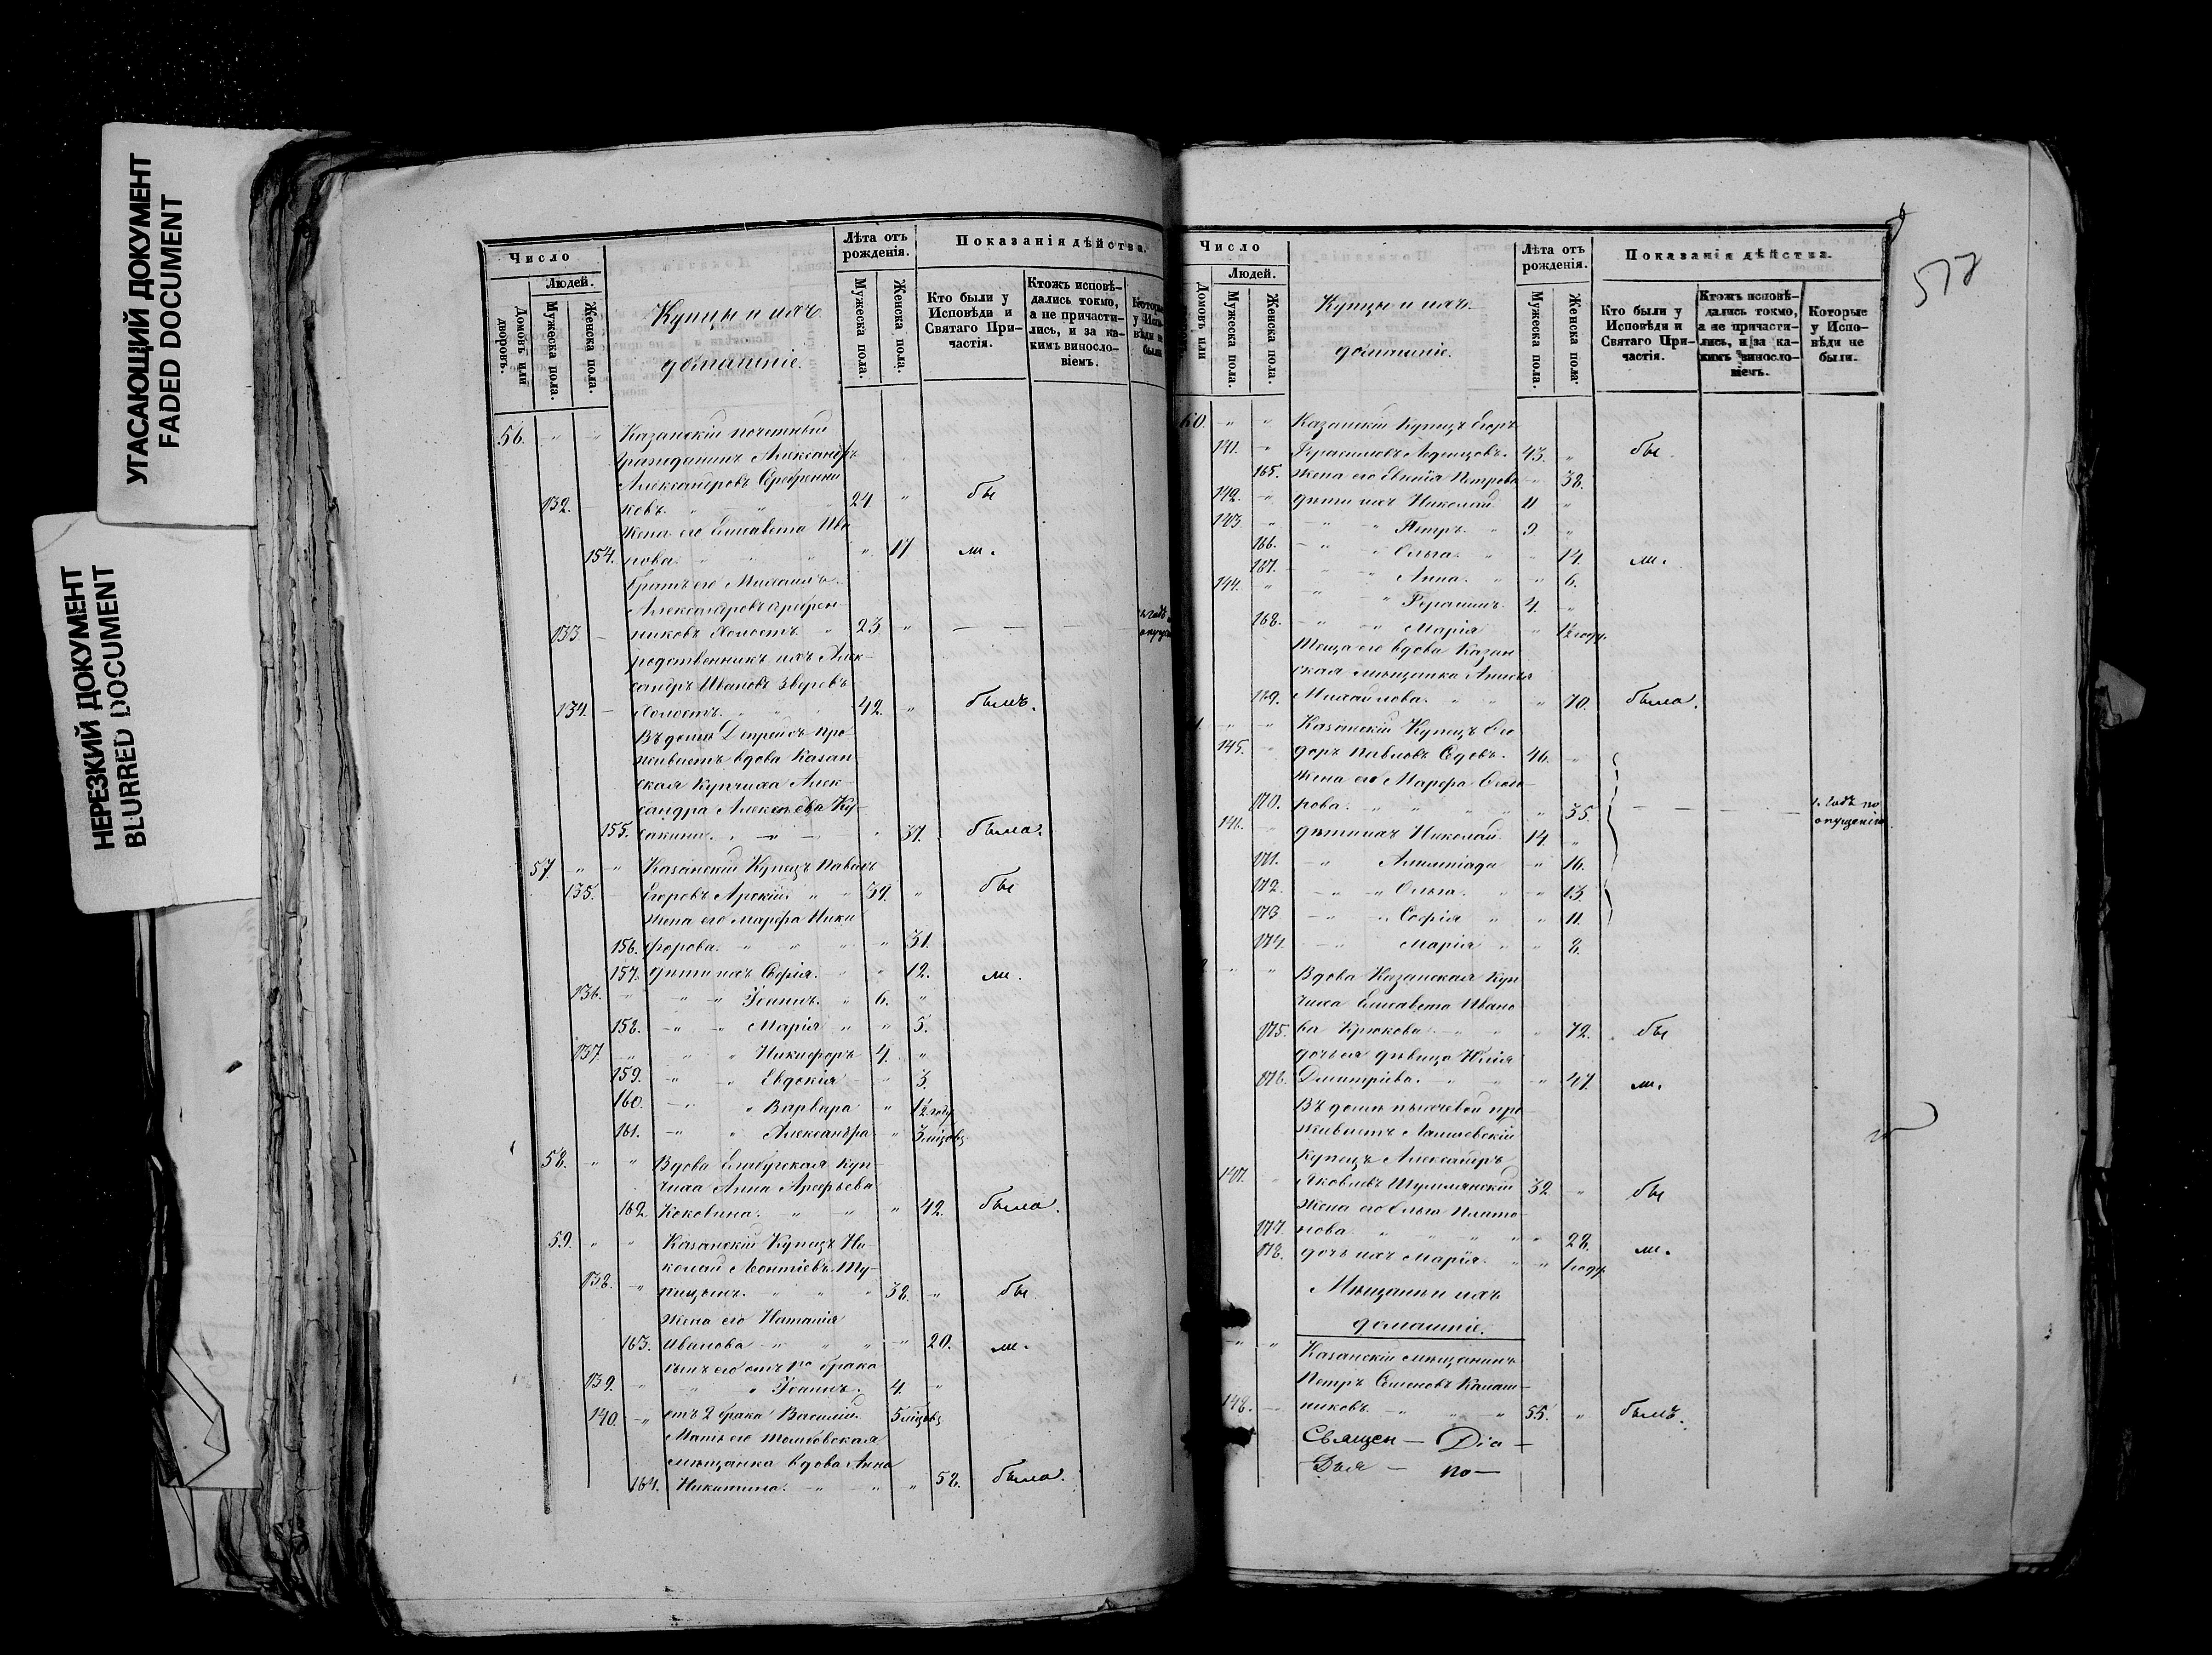 УГАСАЮЩИЙ ДОКУМЕНТ
FADED DOCUMENT
НЕРЕЗКИЙ ДОКУМЕНТ
BLURRED DOCUMENT
Число
Людей.
Домовъ или дворовъ.
Мужеска пола.
Женска пола.
Купцы и ихъ
домашніе.
Лѣта отъ рожденія.
Мужеска пола.
Женска пола.
Показанія дѣйства.
Кто были у Исповѣди и Святаго Причастія.
Ктожъ исповѣдались токмо, а не причастились, и за какимъ винословіемъ.
56. Казанскій почетный
гражданинъ Александръ
Александровъ Серебренни
132. ковъ. 24 бы
Жена его Елисавета Ива
154. нова. 17 ли.
Братъ его Михаилъ
Александровъ Серебрен-
133 никовъ холостъ 23
родственникъ ихъ Алек-
сандръ Ивановъ Зверевъ
134. холостъ. 42. былъ.
Въ домѣ про-
живаетъ вдова Казан
ская Купчиха Алек-
сандра Алексѣева
155. 37. была.
57. Казанскій Купецъ Павелъ
135. Егоровъ Арскій 39. бы
Жена его Марфа Ники
156. форова. 31.
157. дѣти ихъ Софія. 12. ли.
136. Іоаннъ. 6.
158. Марія 5.
137. Никифоръ 4.
159. Евдокія 3.
160. Варвара 1½ году
161. Александра 3 мѣсовъ
58. Вдова Елабугская Куп-
чиха Анна Арефьева
162. Коковина. 42. была.
59. Казанскій Купецъ Ни-
колай Леонтіевъ Ту-
138. пицынъ. 38. бы
Жена его Наталія
163. Иванова 20. ли.
сынъ его отъ 1го брака
139. Іоаннъ. 4.
140. отъ 2 брака Василій. 5 мѣсовъ
Мать его
мѣщанка вдова Анна
164. Никитина. 58. была.
577
Число
Людей.
Домовъ или
Мужеска пола.
Женска пола.
Купцы и ихъ
домашніе.
Лѣта отъ рожденія.
Мужеска пола.
Женска пола
Показанія дѣйства.
Кто были у Исповѣди и Святаго Причастія.
Ктожъ исповѣдались токмо, а не причастились, и за какимъ винословіемъ.
Которые у Исповѣди не были.
60. Казанскій Купецъ Егоръ
141. Герасимовъ 43. бы.
165. жена его Петрова 38.
142. дѣти ихъ Николай 11
143 Петръ. 9
166. Ольга 14. ли.
167. Анна. 6.
144. Герасимъ. 4.
168. Марія 1½ году.
Теща его вдова Казан
ская мѣщанка
169. Михайлова. 70. была.
Казанскій Купецъ Ѳео
145. доръ Павловъ 46.
жена его Марфа
170. рова. 35. 1. годъ по опущенію
146. дѣти ихъ Николай 14.
171. Олимпіада 16.
172. Ольга. 13.
173 Софія 11.
174. Марія 8.
Вдова Казанская Куп
чиха Елисавета Ивано
175. ва Крюкова. 72. бы
дочь ея дѣвица Юлія
176. Дмитріева. 47. ли.
Въ домѣ про
живаетъ Лаишевскій
Купецъ Александръ
147. Яковлевъ 32. бы
жена его Ольга Плато
177. нова. 28.
178. дочь ихъ Марія. 1 году. ли.
Мѣщане и ихъ
домашніе.
Казанскій мѣщанинъ
Петръ Семеновъ Калаш-
148. никовъ. 55. былъ.
Священ — Діа —
но —